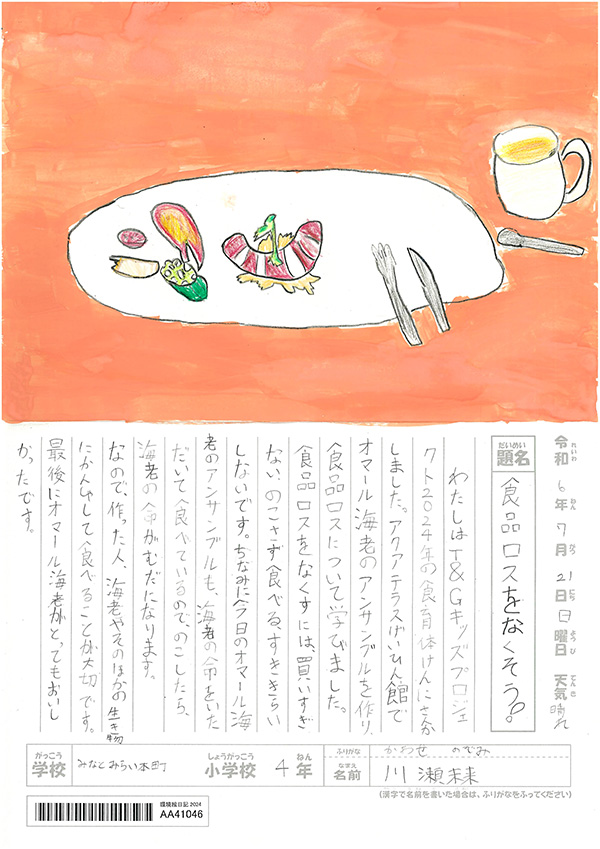 令和6年7月21日日曜日 天気 晴れ
れいわ ねん がつ にち ようび てんき
だいめい
題名 食品ロスをなくそう。
わたしはT&Gキッズプロジェ
クト2024年の食育体けんにさんか
しました。アクアテラスげいひん館で
オマール海老のアンサンブルを作り、
食品ロスについて学びました。
食品ロスをなくすには、買いすぎ
ない、のこさず食べる、すききらい
しないです。ちなみに今日のオマール海
老のアンサンブルも、海老の命をいた
だいて食べているので、のこしたら、
海老の命がむだになります。
なので、作った人、海老やそのほかの生き物
にかんしゃして食べることが大切です。
最後にオマール海老がとってもおいし
かったです。
がっこう しょうがっこう ねん
学校 みなとみらい本町 小学校 4年
ふりがな かわせ のぞみ
なまえ
名前 川瀬未来
(漢字で名前を書いた場合は、ふりがなをふってください)
環境絵日記 2024
AA41046